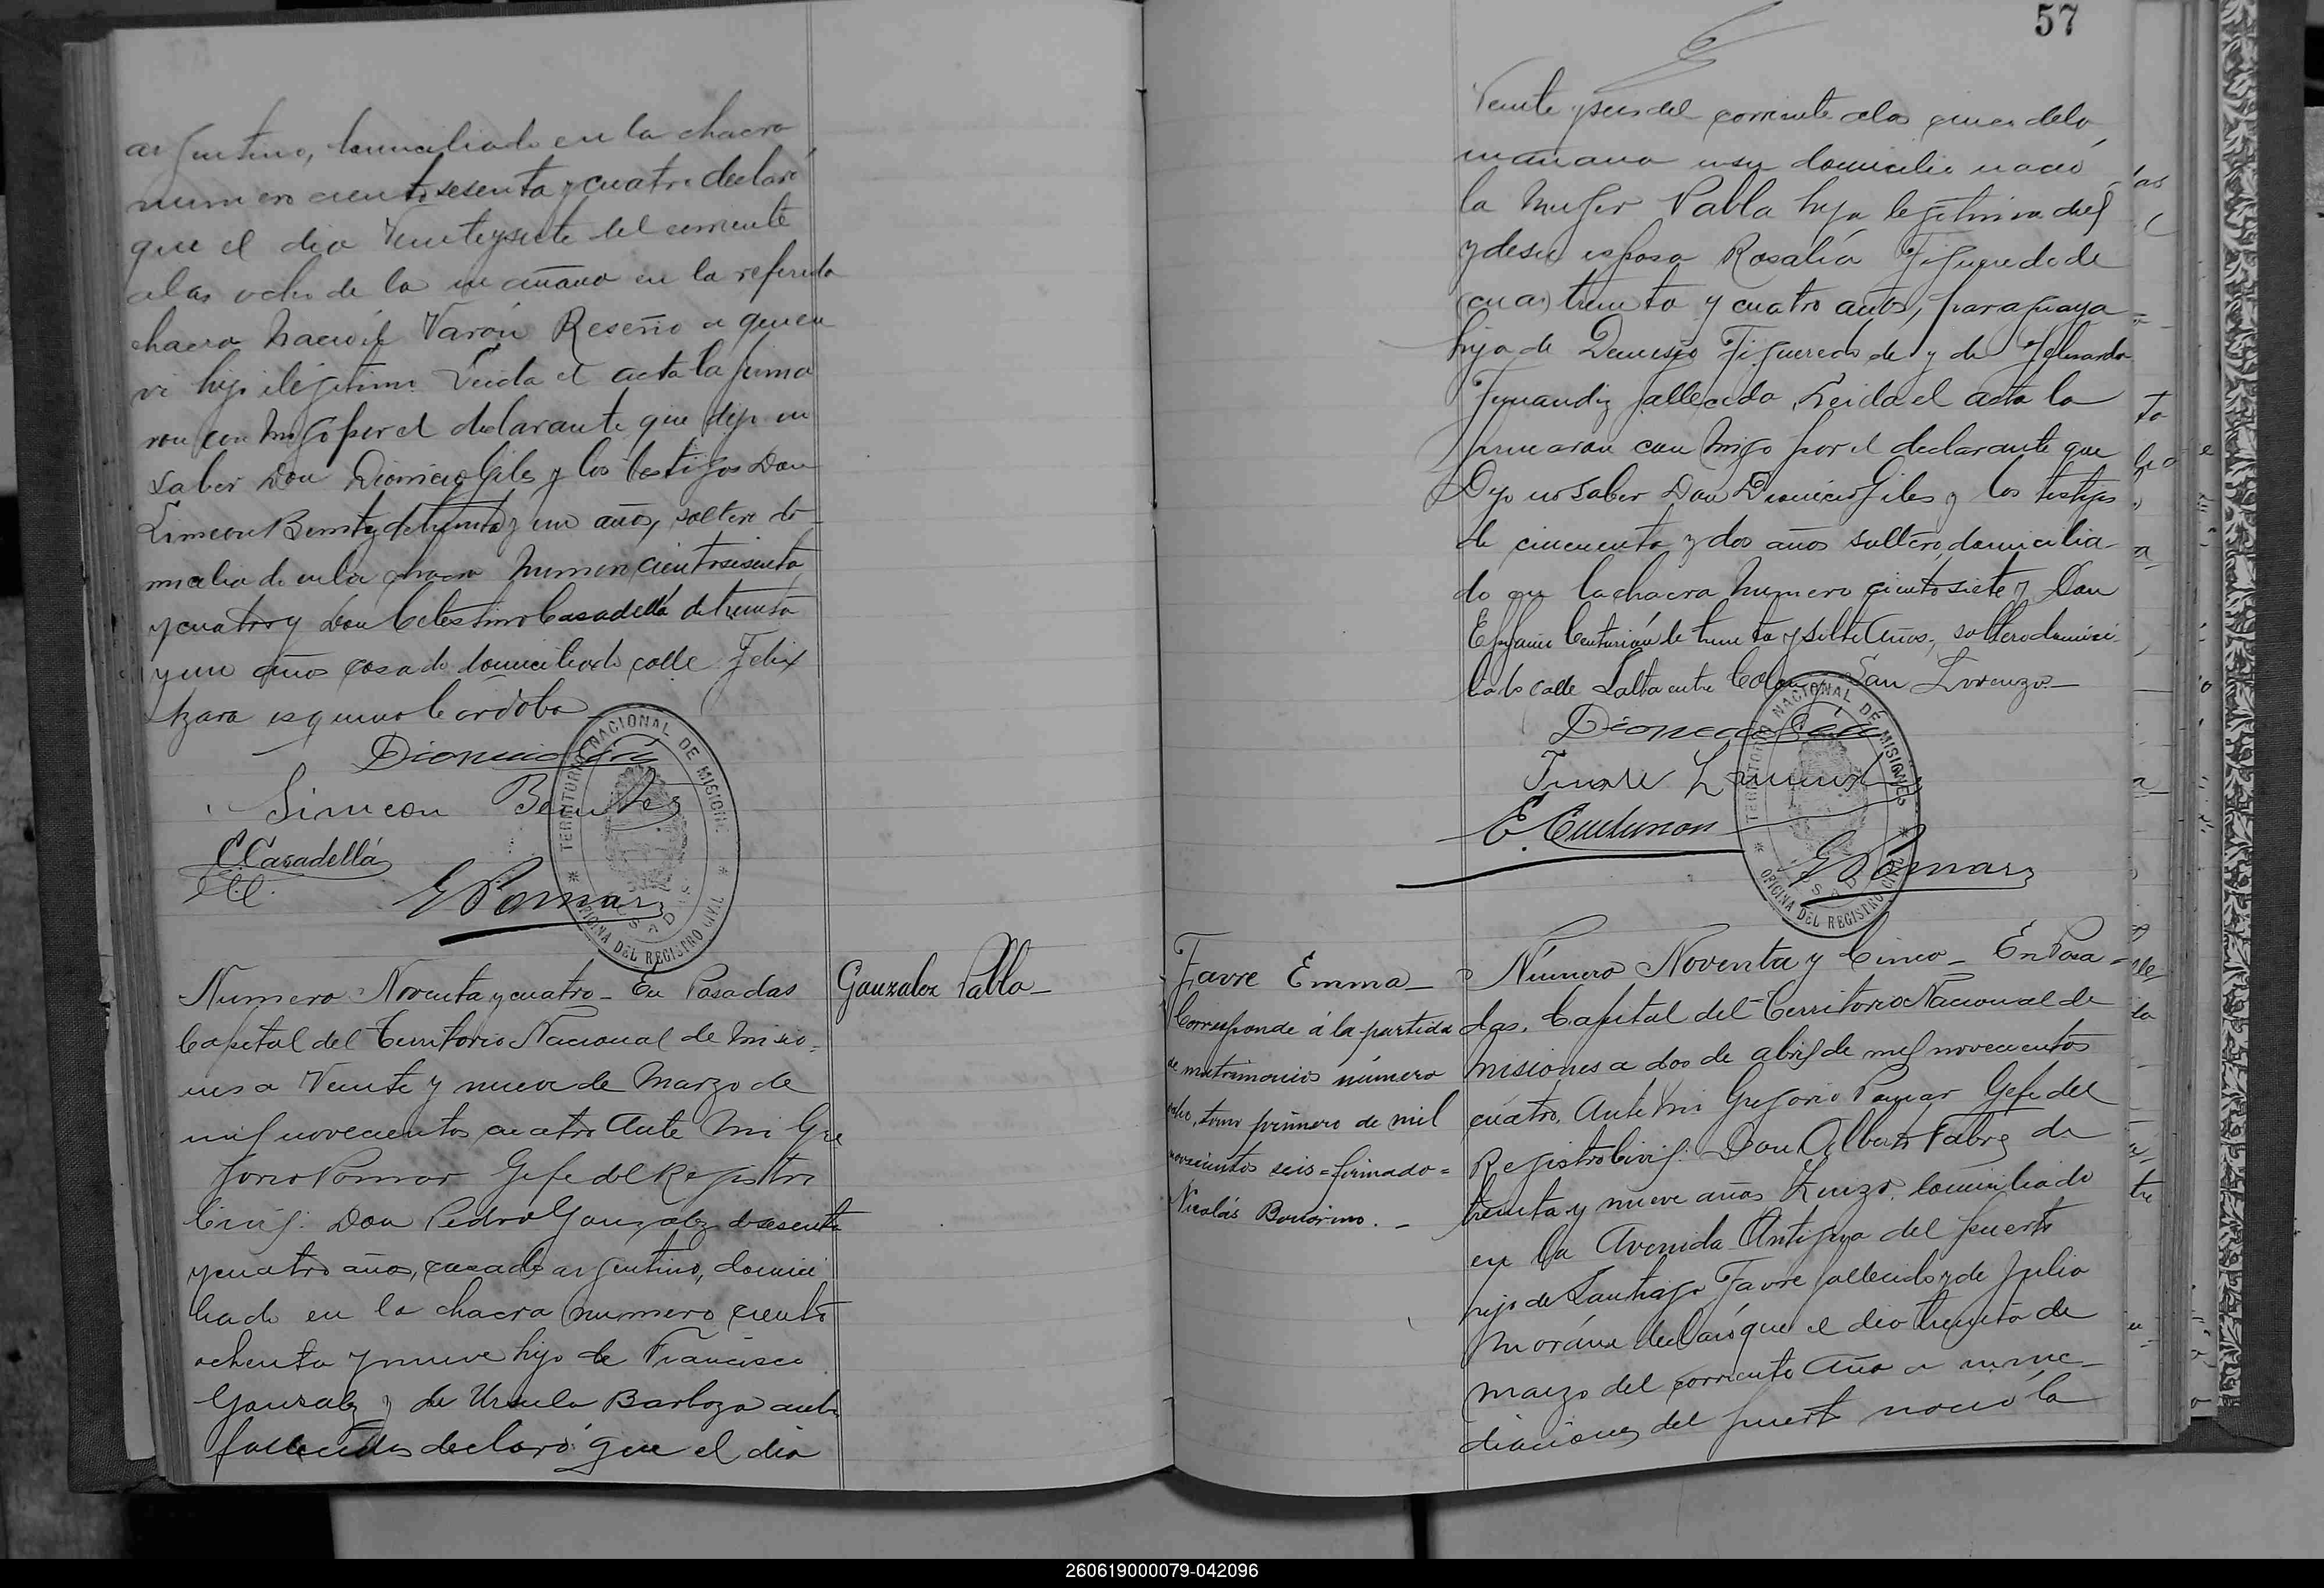 argentino, domiciliado en la chacra
numero ciento sesenta y cuatro declaró
que el dia Veinteysiete del corriente
alas ocho de la mañana en la referida
chacra nació el Varón Reseño a quien
vi hijo ilégitimo Leida el acta la firma
ron con migo por el declarante que dijo no
saber Don Dionicio Giles y los testigos Don
Simeon Benitez de treinta y un años, soltero do
miciliado en la chacra numero ciento sesenta
y cuatro y Don Celestino Casadellá de treinta
y un años casado domiciliado calle Felix
Azara esquina Cordoba
Dionicio
Simeon Benitez
C. Casadellá
G Pomar
TERRITORIO NACIONAL DE MISIONES
OFICINA DEL REGISTRO CIVIL
Gonzalez Pabla
Numero Noventa y cuatro - En Posadas
Capital del Territorio Nacional de Misio=
nes a Veinte y nueve de Marzo de
mil novecientos cuatro Ante Mi Gre
gorio Pomar Gefe del Registro
Civil: Don Pedro Gonzalez de sesenta
y cuatro años, casado argentino, domici
liado en la chacra numero ciento
ochenta y nueve hijo de Francisco
Gonzalez y de Ursula Barboza amb
fallecidos declaró que el dia
57
Veinte y seis del corriente a las cinco dela
mañana en su domicilio nació
la Muger Pabla hija legitima del
y de su esposa Rosalía Figueredo de
(cua) treinta y cuatro años, paraguaya
hija de Figueredo y de
Fernandez fallecida, Leida el acta la
firmaron con migo por el declarante que
Dijo no saber Don Dionicio Giles y los testigos
de cincuenta y dos años soltero, domicilia-
do en la chacra numero ciento siete y Don
Centurión de treinta y siete años, soltero domici
liado calle Salta entre Colon y San Lorenzo.—
E. Centurion
G Pomar
TERRITORIO NACIONAL DE MISIONES
OFICINA DEL REGISTRO CIVIL
Favre Emma —
Corresponde á la partida
de matrimonios número
ocho, tomo primero de mil
novecientos seis = firmado =
Nicolás Bonorino. —
Número Noventa y Cinco - En Posa=
das, Capital del Territorio Nacional de
Misiones a dos de abril de mil novecientos
cuatro, Ante Mi Gregorio Pomar Gefe del
Registro Civil: Don Alberto Fabre de
treinta y nueve años Zuizo, domiciliado
en la Avenida Antigua del puerto
hijo de Santiago Favre fallecido y de Julia
Moráne declaró que el dia treinta de
marzo del corriente Año a inme-
diaciones del puerto nació la
260619000079-042096